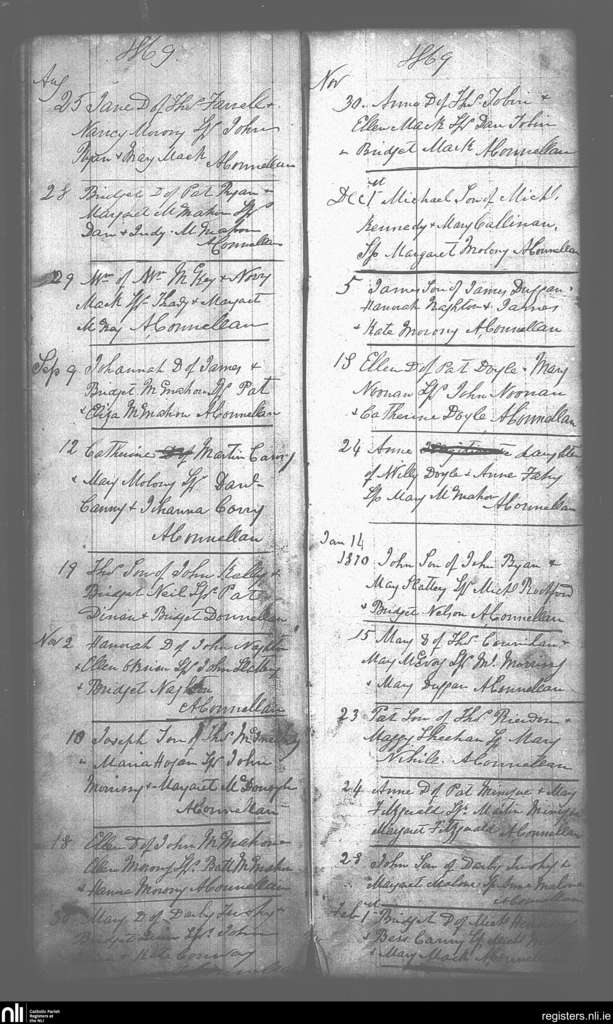 1869
Aug
25 Jane D of Thos Farrell &
Nancy Morony Sps John
Ryan & May Mack AConnellan
28 Bridget D of Pat Ryan &
Margaret McMahon Sps
Dan & Judy McMahon
AConnellan
29 Wm of Wm McKey & Nory
Mack Sps Thady & Margaret
McKey AConnellan
Sep 9 Johannah D of James &
Bridget McMahon Sps Pat
& Eliza McMahon AConnellan
12 Catherine D of Martin Canny
& May Molony Sps Danl
Canny & Johanna Corry
AConnellan
19 Thos Son of John Kelly &
Bridget Neil Sps Pat
Dinan & Bridget Donnellan
Nov 2 Hannah D of John
& Ellen OBrien Sps John Slattery
& Bridget
AConnellan
10 Joseph Son of Thos
& Maria Hogan Sps John
Morissy & Margaret McDonogh
AConnellan
18 Ellen D of John McMahon &
Ellen Morony Sps Batt McMahon
& Hanna Morony AConnellan
30 Mary D of Darby &
Bridget Sps John
& Kate Conway
AConnellan
1869
Nov
30 Anne D of Thos Tobin &
Ellen Mack Sps Dan Tobin
& Bridget Mack AConnellan
Dec 1st Michael Son of Michl
Kennedy & Mary Callinan,
Sp Margaret Molony AConnellan
5 James Son of James Duggan &
Hannah Naghton & James
& Kate Morony AConnellan
18 Ellen D of Pat Doyle & Mary
Noonan Sps John Noonan
& Catherine Doyle AConnellan
24 Anne daughter
of Willy Doyle & Anne Fahy
Sp May McMahon
AConnellan
Jan 14
1870 John Son of John Ryan &
May Slattery Sps Michl Rochford
& Bridget Nelson AConnellan
15 May D of Thos Counihan &
May McEvoy Sps Ml Morissy
& Mary Duggan AConnellan
23 Pat Son of Thos Riordon &
Maggy Sheehan Sp Mary
Nihile. AConnellan
24 Anne D of Pat & May
Fitzgerald Sps Martin
Margaret Fitzgerald AConnellan
28 John Son of Darby &
Margaret Malone Sp Anne Malone
AConnellan
Feb 1st Bridget D of Mick
& Bess Canny Sps Mick
& May Mack AConnellan
nli
Catholic Parish
Registers at
the NLI
registers.nli.ie